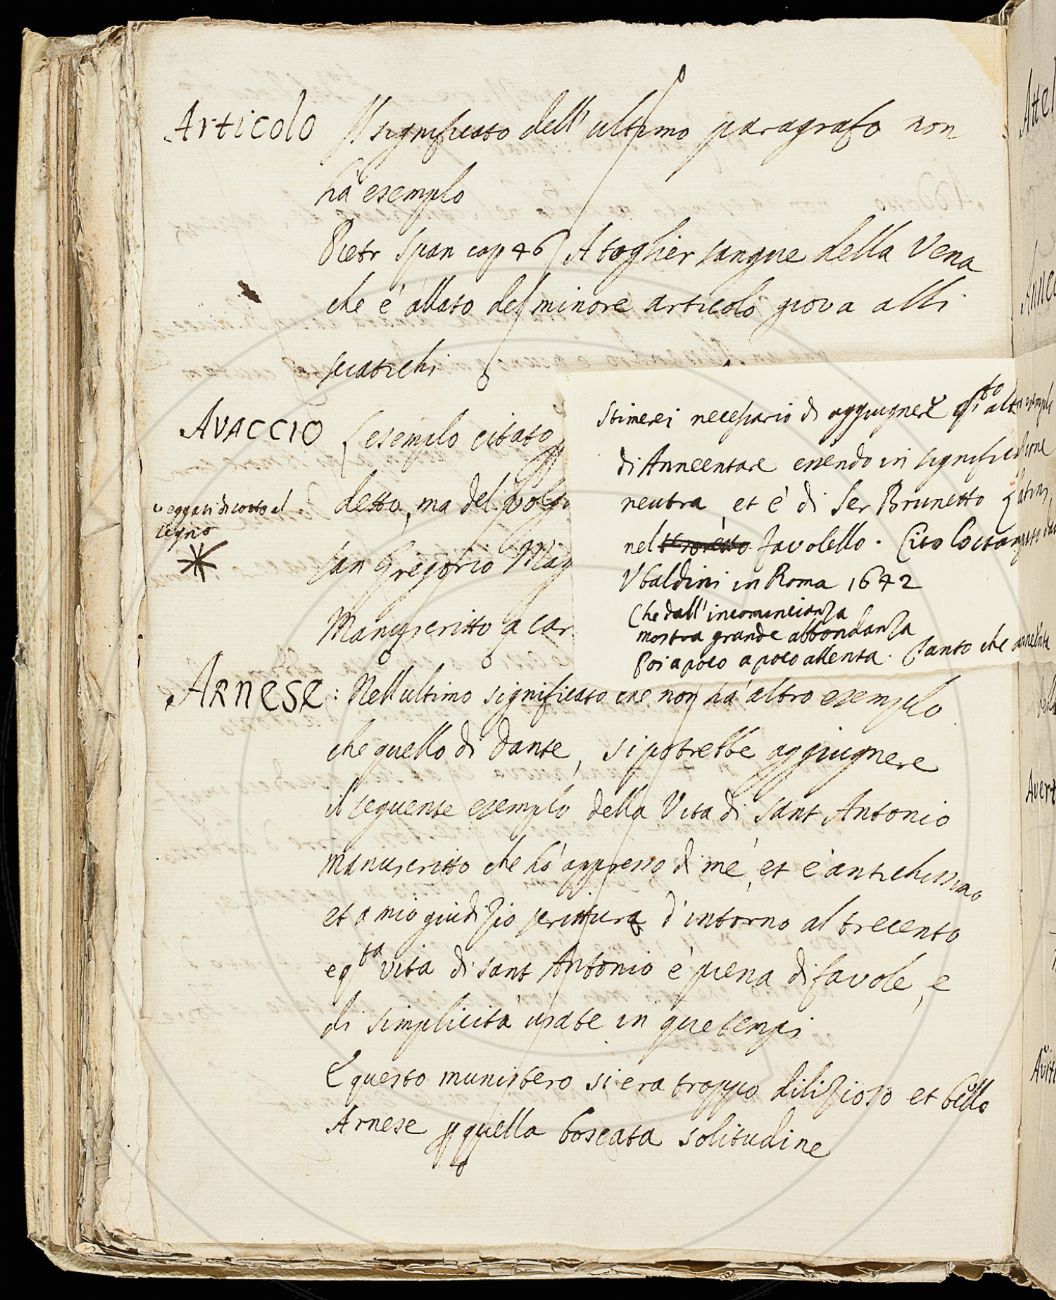 Articolo Il significato dell'ultimo paragrafo non
ha esemplo
Pietr Span cap 46 A toglier sangue della Vena
che è allato del minore articolo giova alli
sciatichi
AVACCIO esemplo citato
detto, ma del volg
veggasi di sotto al
segno
San Gregorio Mag
Manuscritto a car
stimerei necessario di aggiugnere qsto altro esemplo
di Anneentare essendo in significazione
neutra et è di Ser Brunetto Latini
nel Tesoretto favolello. Cito
Vbaldini in Roma 1642
Che dall'incomincianza
mostra grande abbondanza
Poi a poco a poco allenta. Tanto che annenta
ARNESE: Nell ultimo significato che non ha altro esemplo
che quello di Dante, si potrebbe aggiugnere
il seguente esemplo della Vita di Sant Antonio
manuscritto che hò appresso di mé, et è antichissimo
et a mio giudizio scrittura d'intorno al trecento
e qta vita di sant Antonio è piena di favole, e
di simplicità usate in que tempi
E questo munistero si era troppo dilizioso et bello
Arnese p quella boscata solitudine